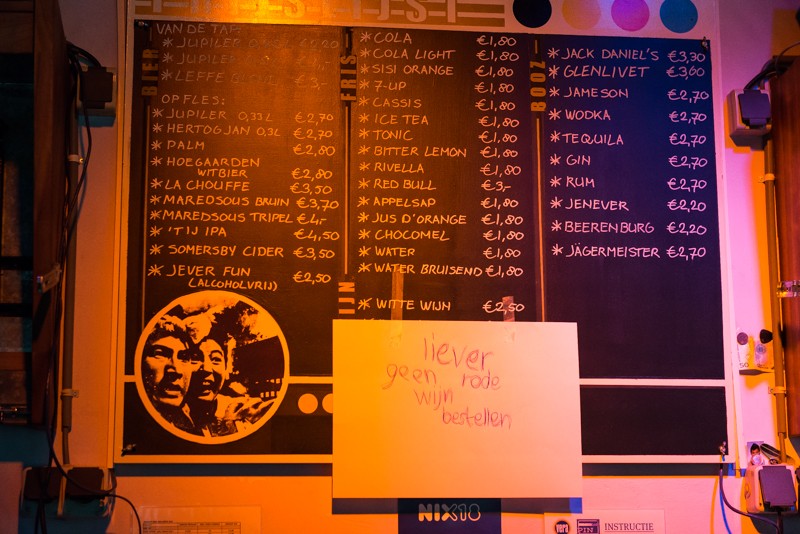 BIER
VAN DE TAP:
* JUPILER
* JUPILER
* LEFFE
OP FLES:
* JUPILER 0,33L €2,70
* HERTOG JAN 0,3L €2,70
* PALM €2,80
* HOEGAARDEN
WITBIER €2,80
* LA CHOUFFE €3,50
* MAREDSOUS BRUIN €3,70
* MAREDSOUS TRIPEL €4,-
* 'T IJ IPA €4,50
* SOMERSBY CIDER €3,50
* JEVER FUN €2,50
(ALCOHOLVRIJ)
FRIS
* COLA €1,80
* COLA LIGHT €1,80
* SISI ORANGE €1,80
* 7-UP €1,80
* CASSIS €1,80
* ICE TEA €1,80
* TONIC €1,80
* BITTER LEMON €1,80
* RIVELLA €1,80
* RED BULL €3,-
* APPELSAP €1,80
* JUS D'ORANGE €1,80
* CHOCOMEL €1,80
* WATER €1,80
* WATER BRUISEND €1,80
* WITTE WIJN €2,50
BOOZ
* JACK DANIEL'S €3,30
* GLENLIVET €3,60
* JAMESON €2,70
* WODKA €2,70
* TEQUILA €2,70
* GIN €2,70
* RUM €2,70
* JENEVER €2,20
* BEERENBURG €2,20
* JÄGERMEISTER €2,70
liever
geen rode
wijn
bestellen
NIX18
vera
INSTRUCTIE